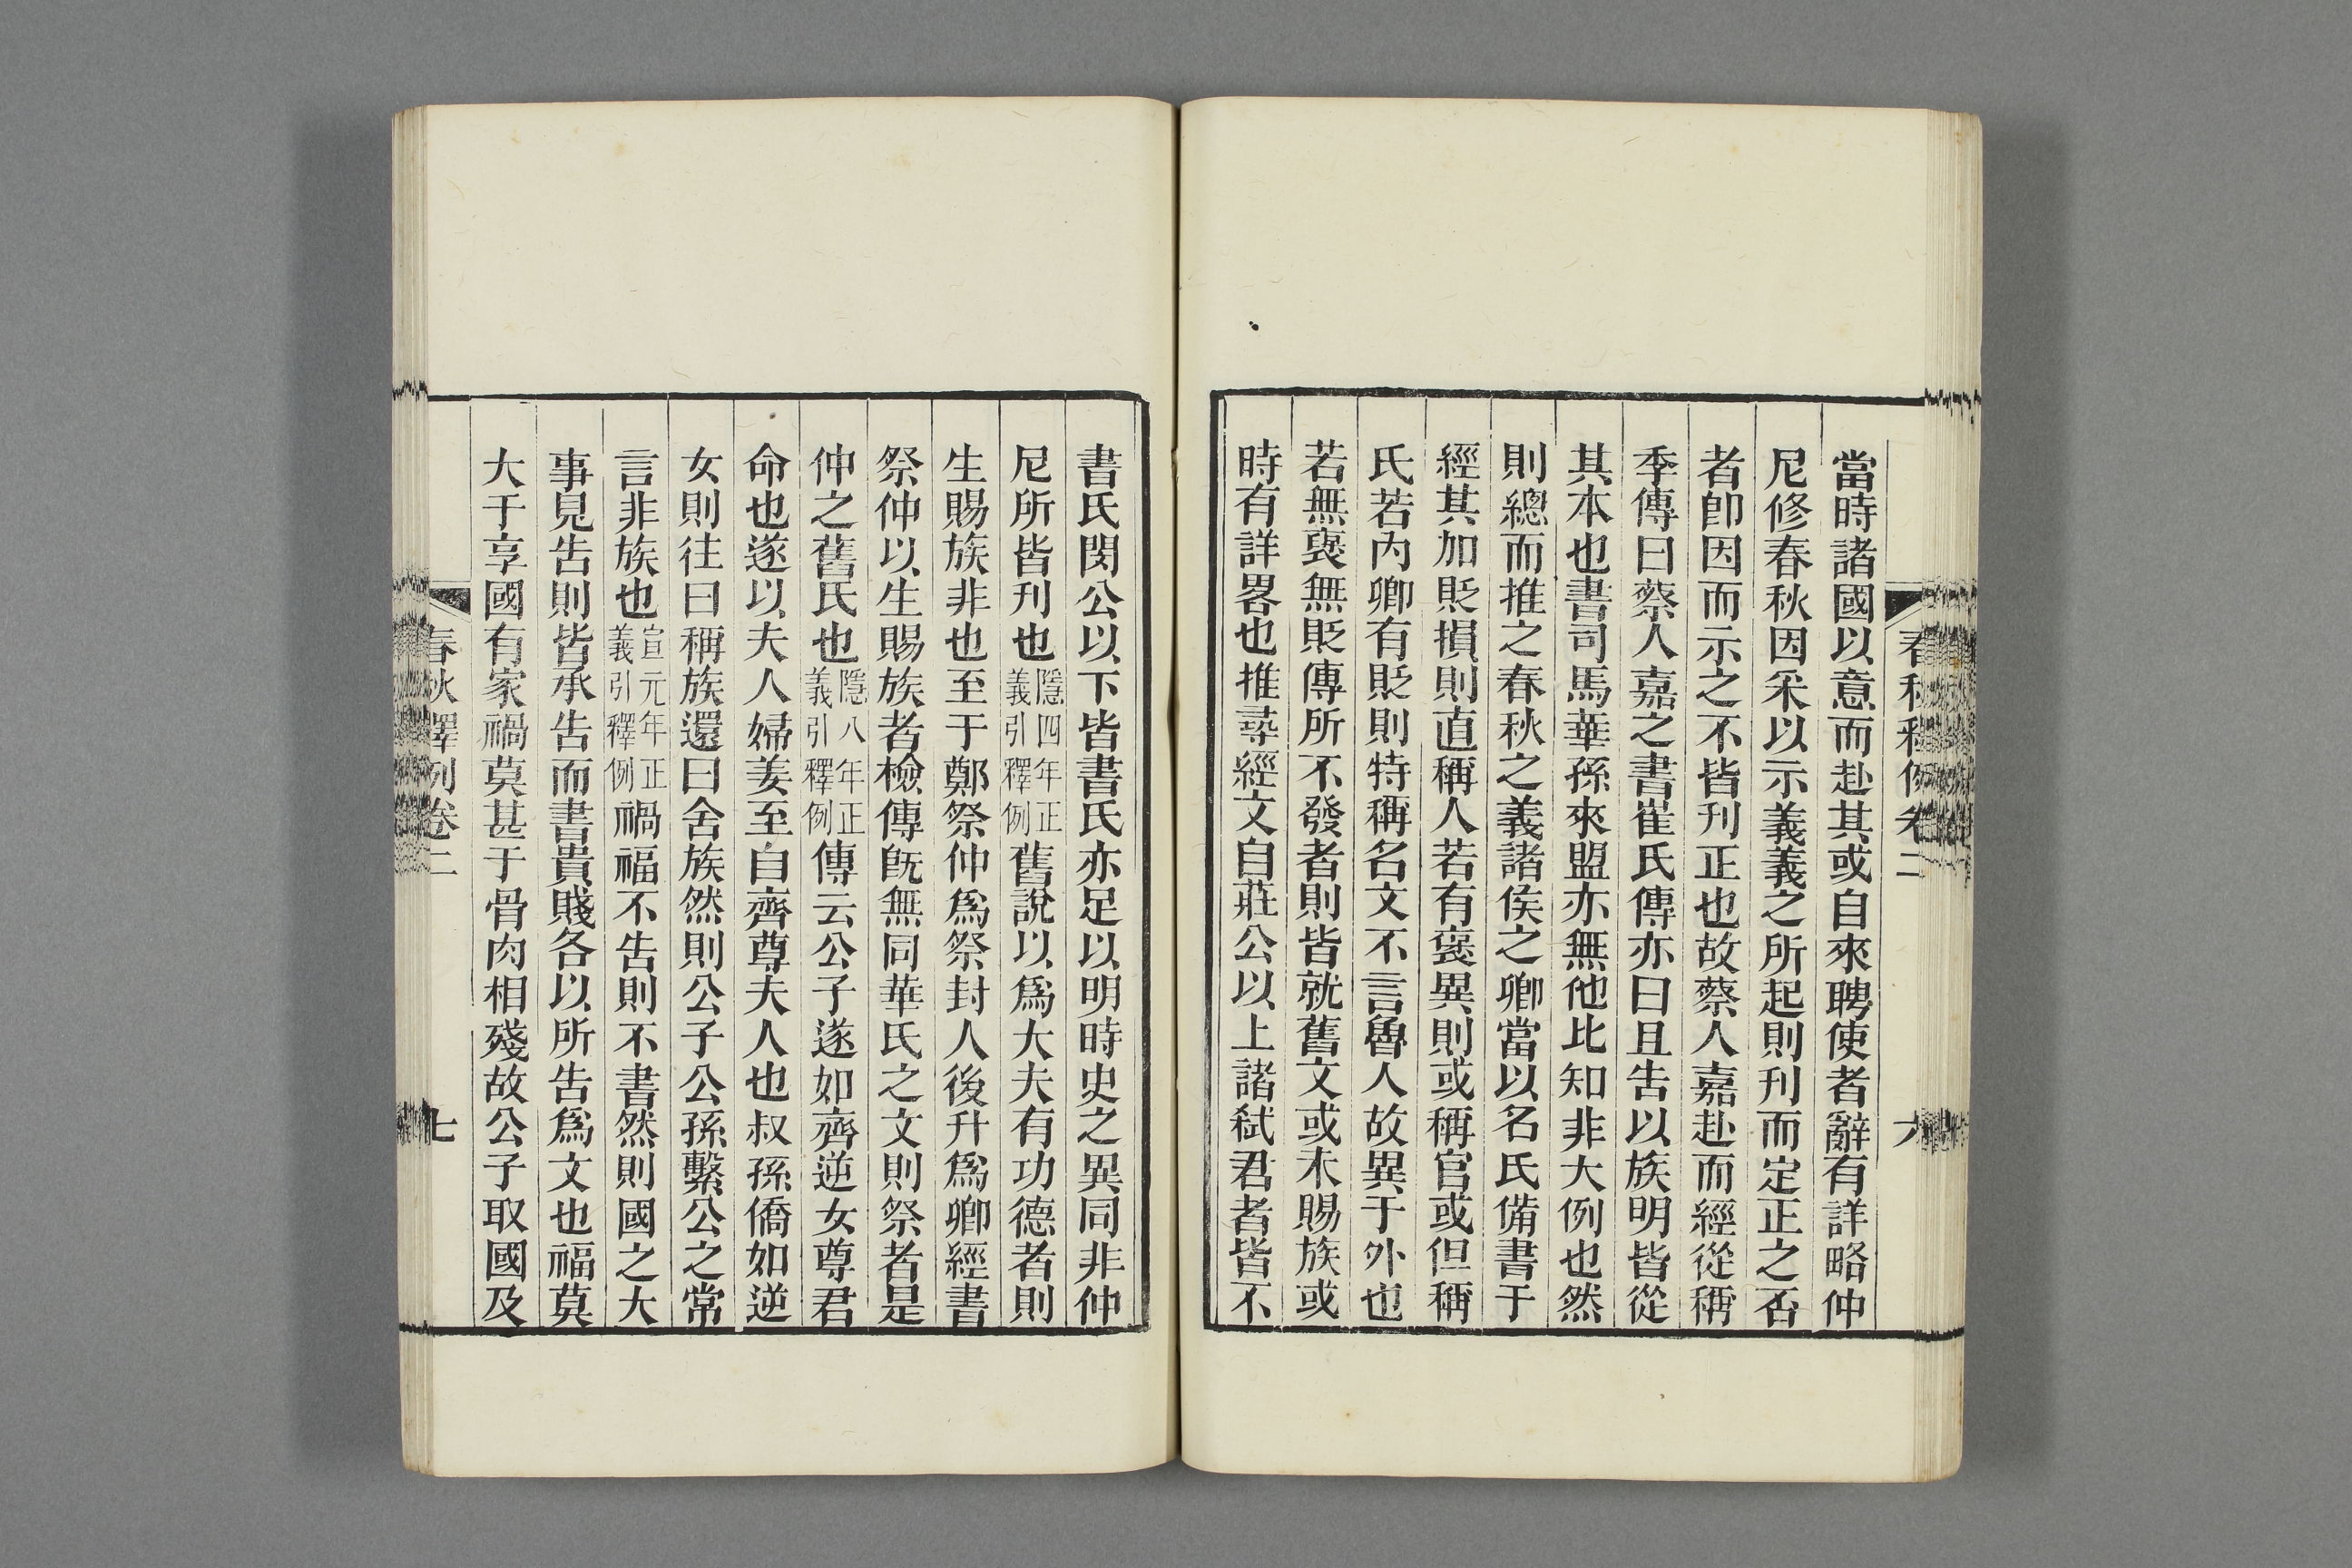 當時諸國以意而赴其或自來聘使者辭有詳略仲
尼修春秋因采以示義義之所起則刊而定正之否
者卽因而示之不皆刊正也故蔡人嘉赴而經從稱
季傳曰蔡人嘉之書崔氏傳亦曰且告以族明皆從
其本也書司馬華孫來盟亦無他比知非大例也然
則總而推之春秋之義諸侯之卿當以名氏備書于
經其加貶損則直稱人若有褒異則或稱官或但稱
氏若內卿有貶則特稱名文不言魯人故異于外也
若無褒無貶傳所不發者則皆就舊文或未賜族或
時有詳畧也推尋經文自莊公以上諸弑君者皆不
春秋釋例卷二
六
書氏閔公以下皆書氏亦足以明時史之異同非仲
尼所皆刊也隱四年正義引釋例舊說以爲大夫有功德者則
生賜族非也至于鄭祭仲爲祭封人後升爲卿經書
祭仲以生賜族者檢傳旣無同華氏之文則祭者是
仲之舊氏也隱八年正義引釋例傳云公子遂如齊逆女尊君
命也遂以夫人婦姜至自齊尊夫人也叔孫僑如逆
女則往曰稱族還曰舍族然則公子公孫繫公之常
言非族也宣元年正義引釋例禍福不告則不書然則國之大
事見告則皆承告而書貴賤各以所告爲文也福莫
大于享國有家禍莫甚于骨肉相殘故公子取國及
春秋釋例卷二
七